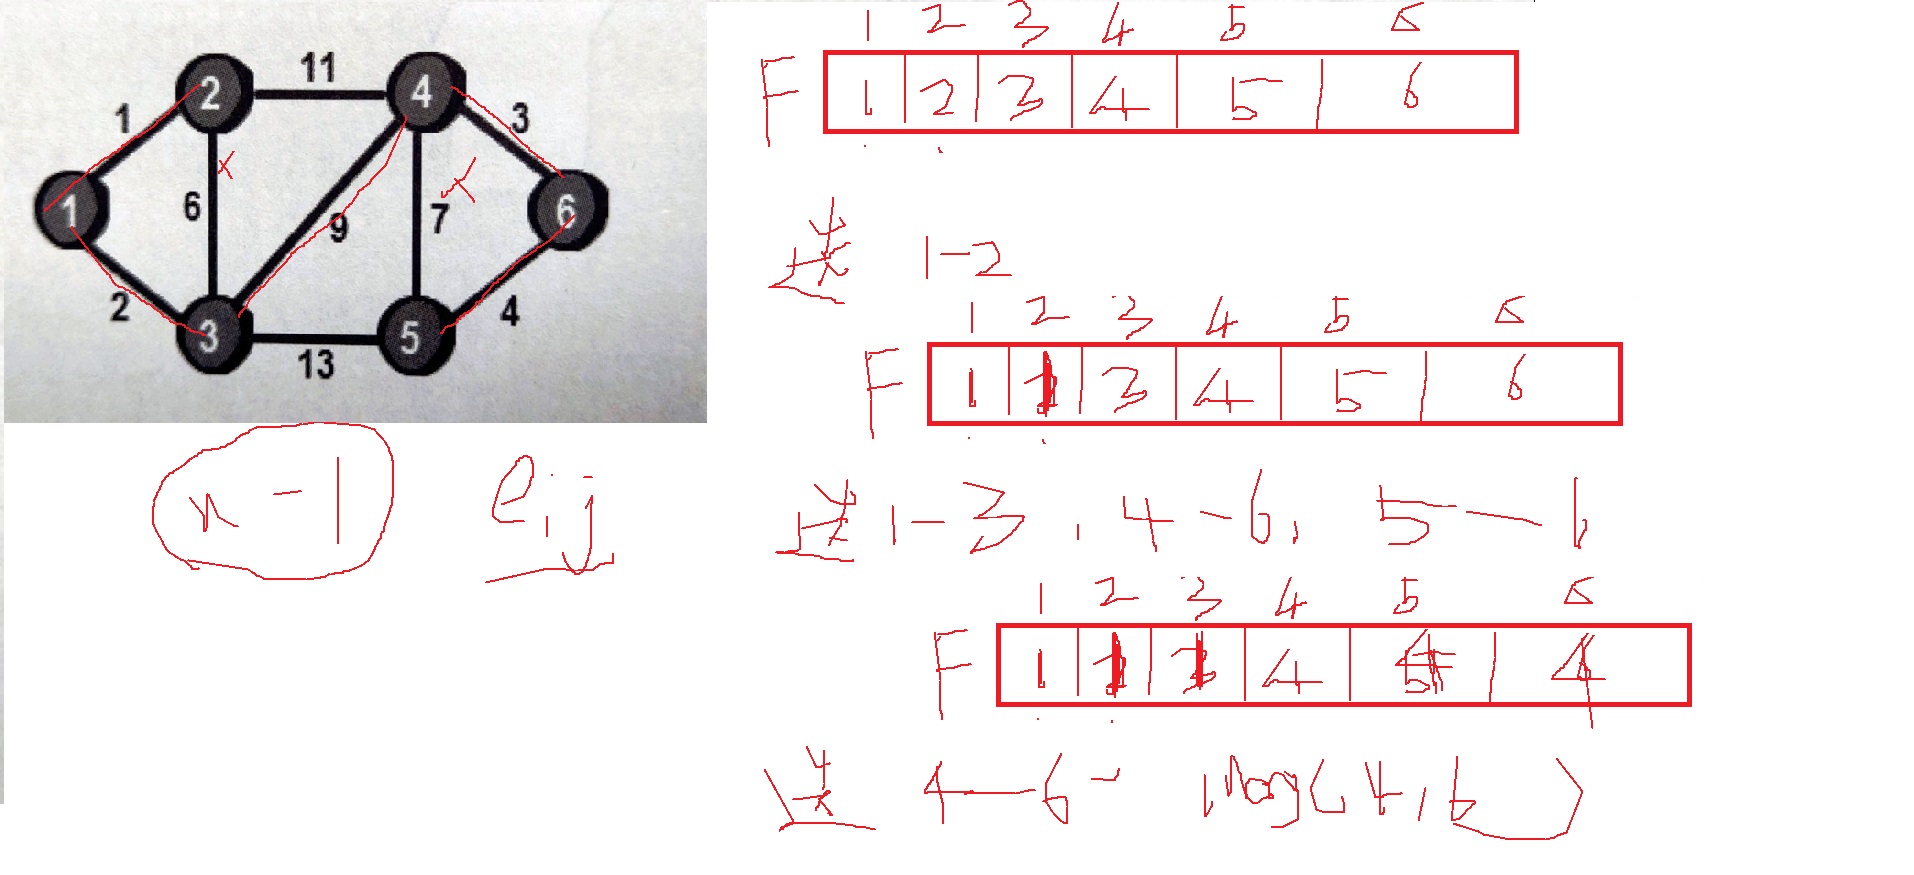 2 11 4
1 3
1 6 9 7 6
2 4
3 13 5
n-1 e i,j
1 2 3 4 5 6
F 1 2 3 4 5 6
选 1-2
1 2 3 4 5 6
F 1 1 3 4 5 6
选 1-3, 4-6, 5-6
1 2 3 4 5 6
F 1 1 1 4 4 4
选 4-6
(4,6)